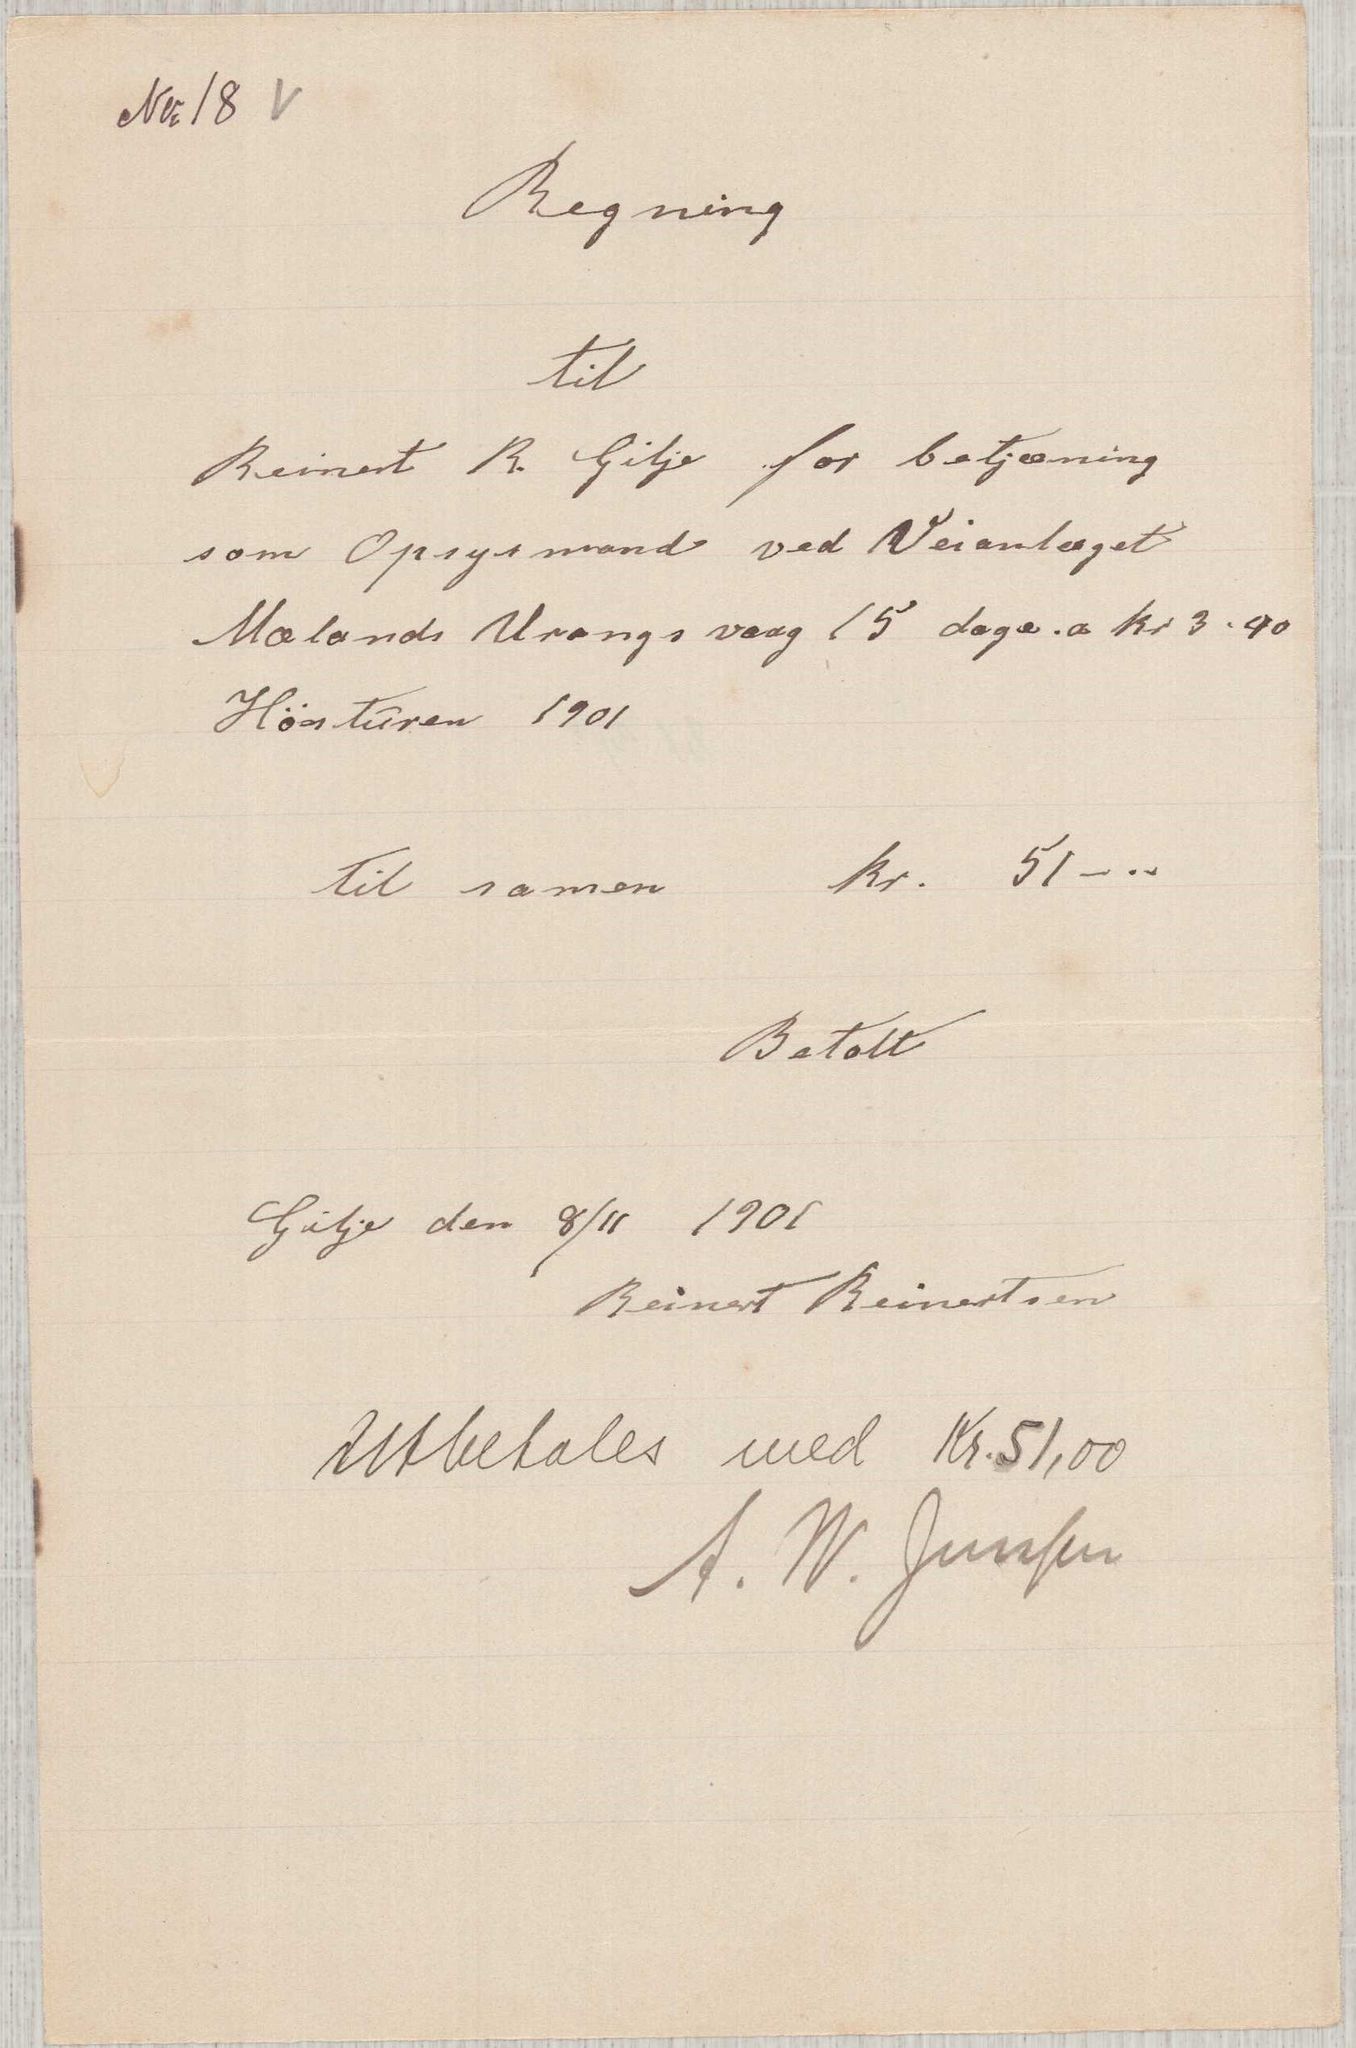 No 18 V
Regning
til
Reinert R. Gilje for betjæning
som Opsysmand ved Veianlæget
Mælands Urangsvaag 15 dage. a kr 3.40
Hösturen 1901
til samen kr. 51 - ..
Betalt
Gilje den 8/11 1901
Reinert Reinertsen
Utbetales med Kr. 51,00
A. W. Jensen